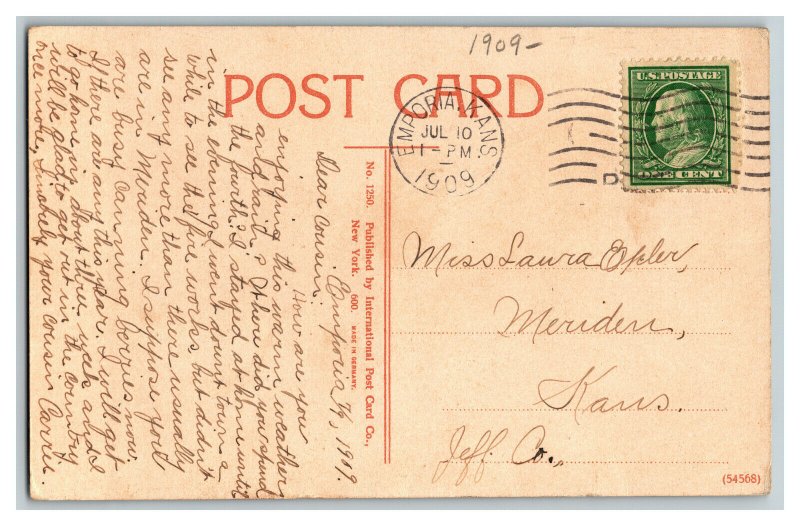 1909-
POST CARD
EMPORIA, KANS.
JUL 10
1-PM
1909
U.S. POSTAGE
ONE CENT
Miss Laura Epler,
Meriden,
Kans.
Jeff. Co.,
(54568)
No. 1250. Published by International Post Card Co.,
New York. 600. MADE IN GERMANY.
Emporia 1909.
Dear Cousin:
How are you
enjoying this warm weather
and rain? Where did you spend
the fourth? I stayed at home until
in the evening I went down town a
while to see the fire works, but didn't
see any more than there usually
are in Meriden. I suppose you
are busy canning berries now.
If there are any this year. I will get
to go home in about three weeks and I
will be glad to get out in the country
once more, Sincerely your cousin Carrie.